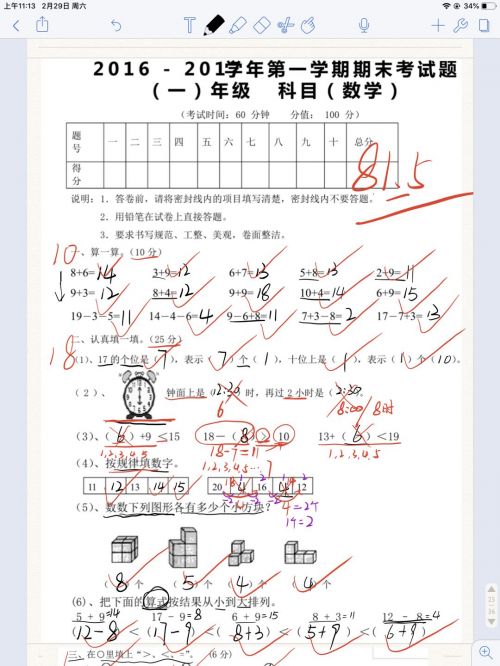 上午11:13 2月29日 周六
34%
2016 - 2017学年第一学期期末考试题
（一）年级 科目（数学）
（考试时间：60 分钟 分值： 100 分）
题号 一 二 三 四 五 六 七 八 九 十 总分
得分
81.5
说明：1. 答卷前，请将密封线内的项目填写清楚，密封线内不要答题。
2. 用铅笔在试卷上直接答题。
3. 要求书写规范、工整、美观，卷面整洁。
10
一、算一算。(10 分)
8+6=14 3+9=12 6+7=13 5+8=13 2+9=11
9+3=12 8+4=12 9+9=18 10+4=14 6+9=15
19－3－5=11 14-4-6=4 9－6+8=11 7+3－8=2 17-7+3=13
二、认真填一填。(25 分)
18
(1)、17 的个位是（7），表示（7）个（1），十位上是（1），表示（1）个（10）。
(2)、 钟面上是（12:30）时，再过 2 小时是（2:30）。
6 8:00/8时
(3)、（6）+9 ≤15 18－（8）> 10 13+（6）<19
1,2,3,4,5 18-7=11 1,2,3,4,5
1,2,3,4,5…7
(4)、按规律填数字。
11 12 13 14 15 20 16 12
(5)、数数下列图形各有多少个小方块？
（8）个 （5）个 （4）个 （4）个
(6)、把下面的算式按结果从小到大排列。
5 + 9=14 17 － 9=8 6 + 9=15 8 + 3=11 12 － 8=4
（12-8）<（17-9）<（8+3）<（5+9）<（6+9）
三、在○里填上“>、<、=。”（6分）
25
36